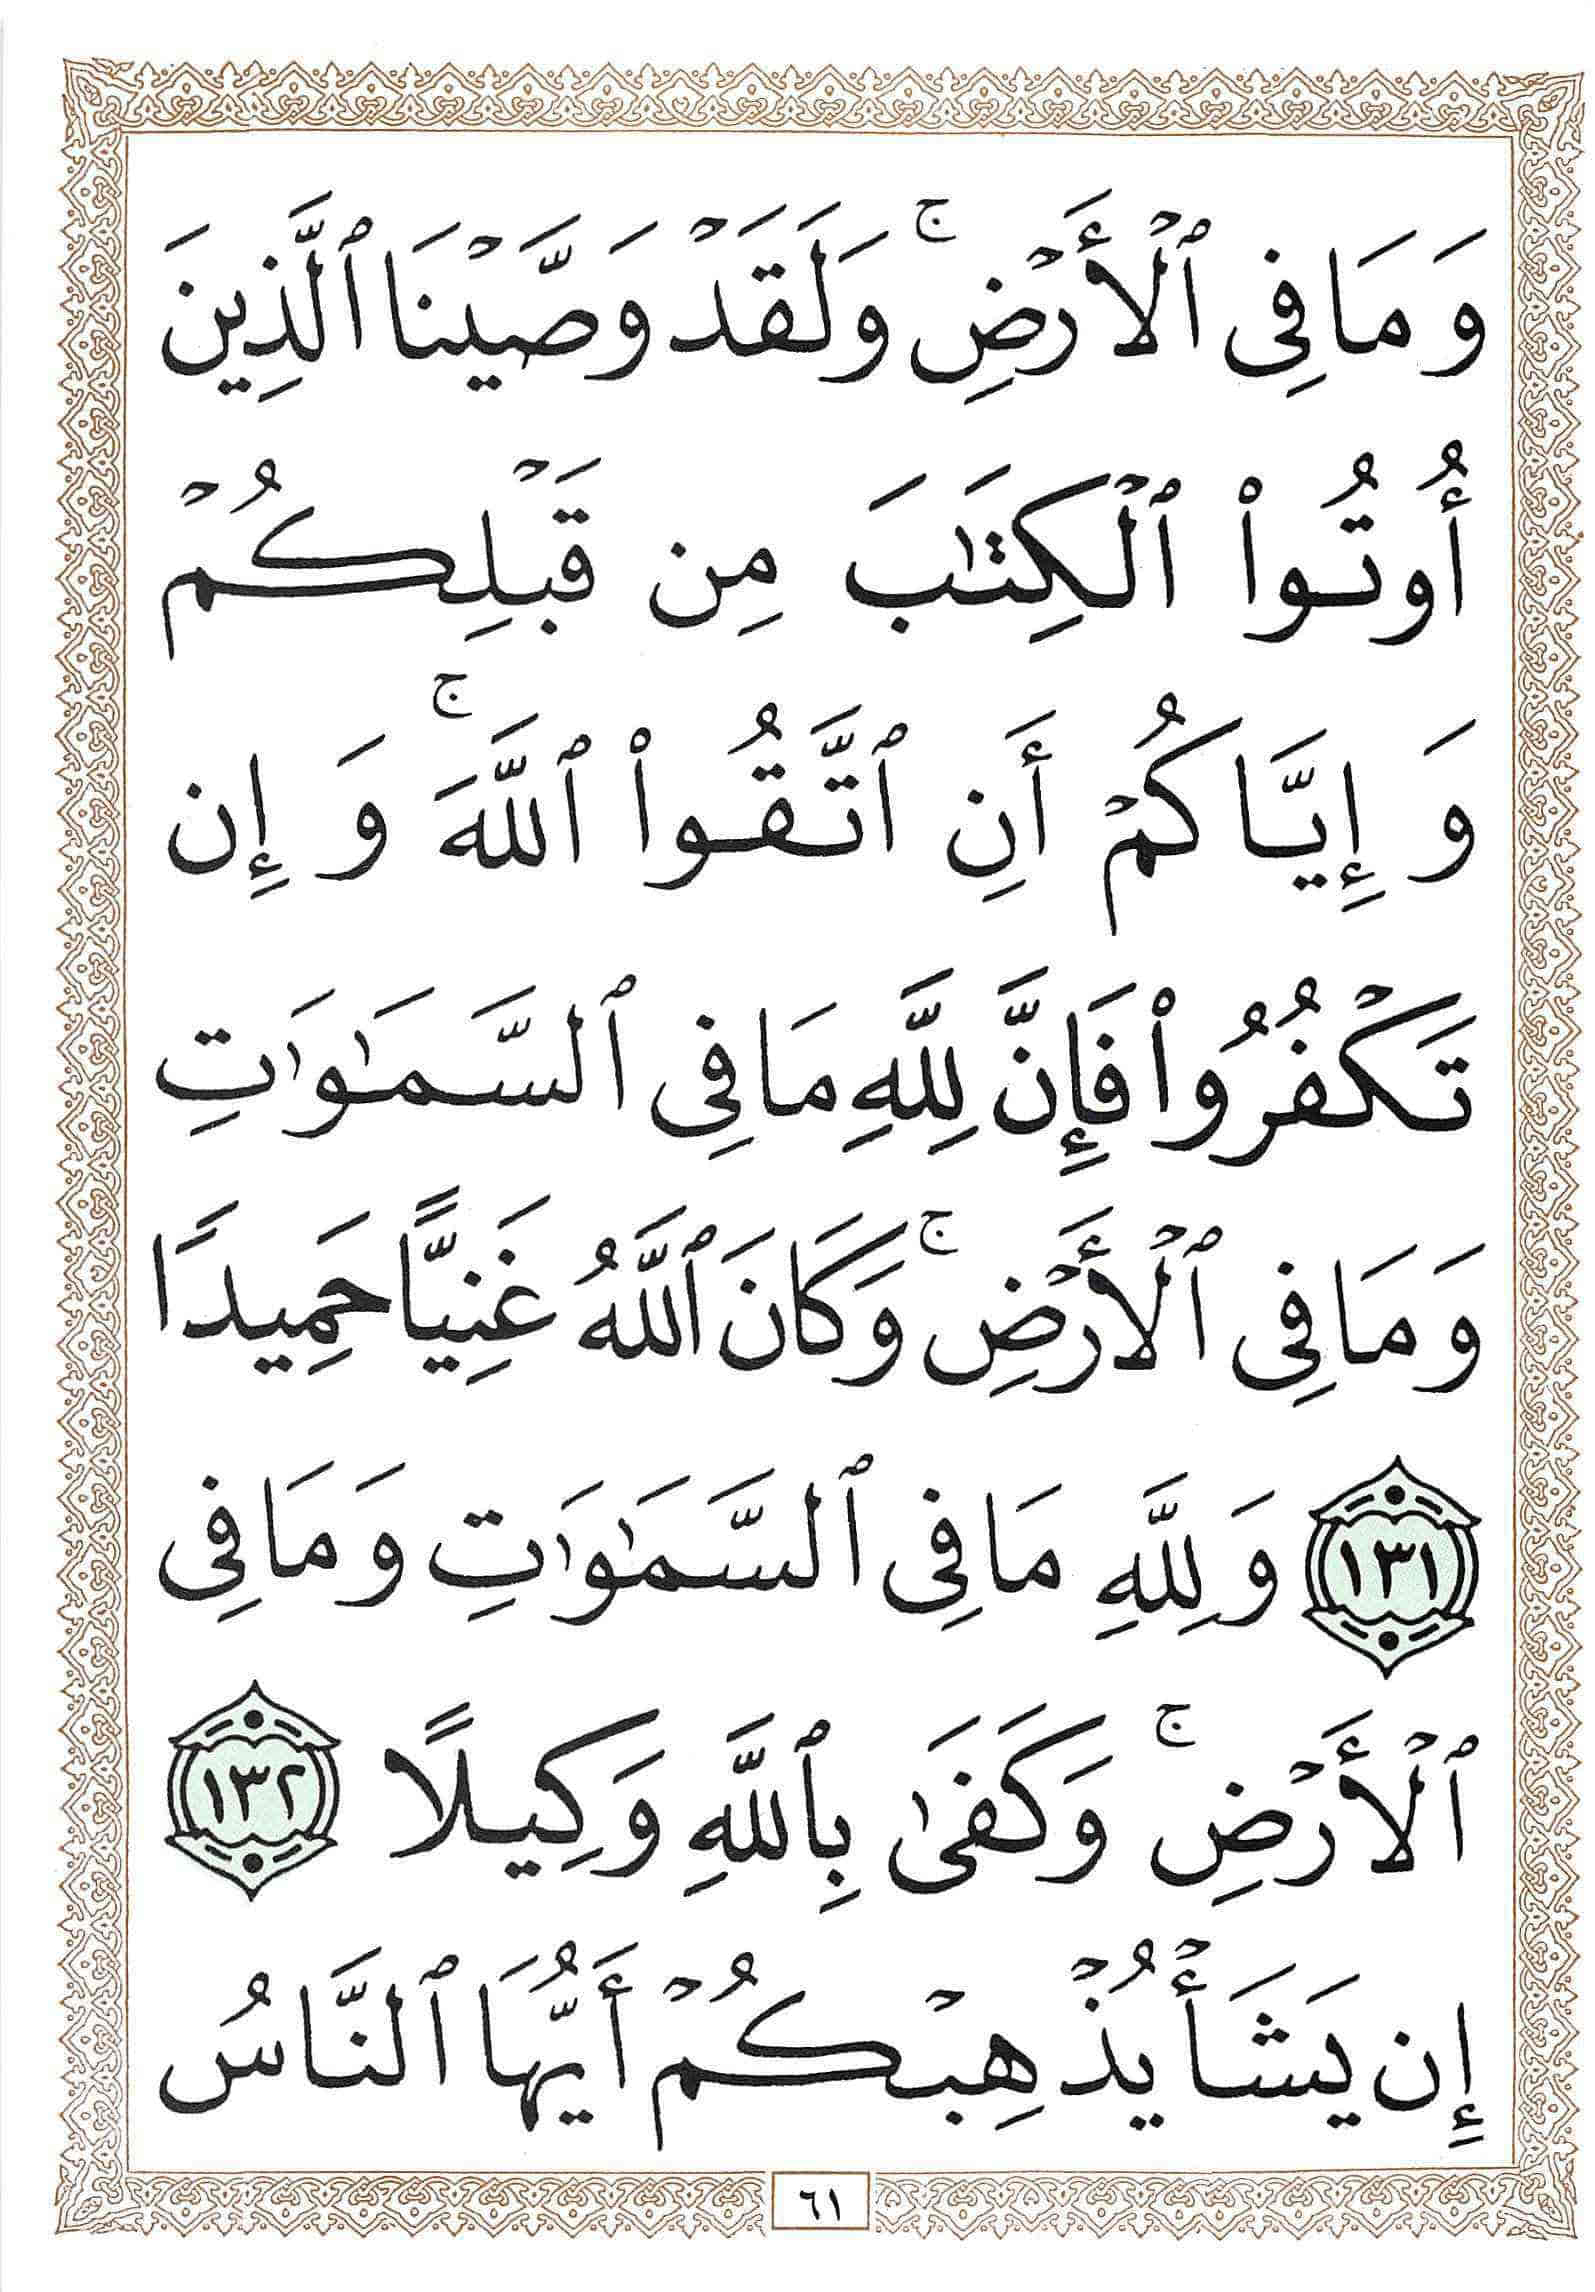 وَمَا فِى ٱلْأَرْضِ ۚ وَلَقَدْ وَصَّيْنَا ٱلَّذِينَ
أُوتُوا۟ ٱلْكِتَـٰبَ مِن قَبْلِكُمْ
وَإِيَّاكُمْ أَنِ ٱتَّقُوا۟ ٱللَّهَ ۚ وَإِن
تَكْفُرُوا۟ فَإِنَّ لِلَّهِ مَا فِى ٱلسَّمَـٰوَٰتِ
وَمَا فِى ٱلْأَرْضِ ۚ وَكَانَ ٱللَّهُ غَنِيًّا حَمِيدًا
١٣١ وَلِلَّهِ مَا فِى ٱلسَّمَـٰوَٰتِ وَمَا فِى
ٱلْأَرْضِ ۚ وَكَفَىٰ بِٱللَّهِ وَكِيلًا ١٣٢
إِن يَشَأْ يُذْهِبْكُمْ أَيُّهَا ٱلنَّاسُ
٦١